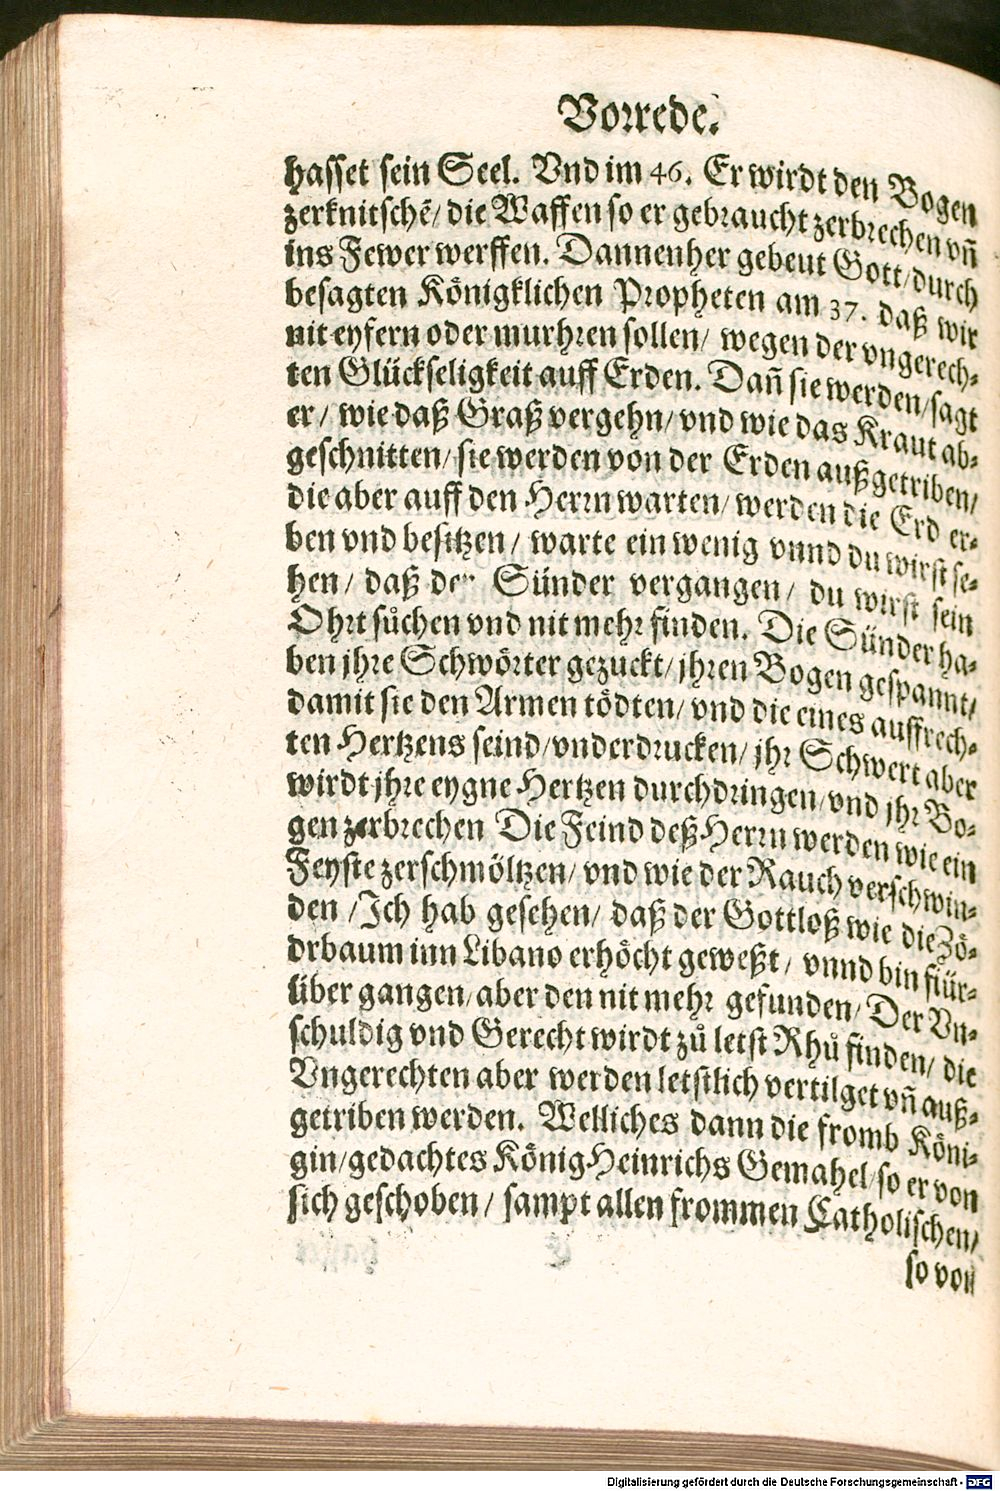 Vorrede.
hasset sein Seel. Vnd im 46. Er wirdt den Bogen
zerknitschē/ die Waffen so er gebraucht zerbrechen vñ
ins Fewer werffen. Dannenher gebeut Gott/ durch
besagten Königklichen Propheten am 37. daß wir
nit eyfern oder murhren sollen/ wegen der vngerech-
ten Glückseligkeit auff Erden. Dañ sie werden/ sagt
er/ wie daß Graß vergehn/ vnd wie das Kraut ab-
geschnitten/ sie werden von der Erden außgetriben/
die aber auff den Herrn warten/ werden die Erd er-
ben vnd besitzen/ warte ein wenig vnnd du wirst se-
hen/ daß der Sünder vergangen/ du wirst sein
Ohrt sůchen vnd nit mehr finden. Die Sünder ha-
ben jhre Schwörter gezuckt/ jhren Bogen gespannt/
damit sie den Armen tödten/ vnd die eines auffrech-
ten Hertzens seind/ vnderdrucken/ jhr Schwert aber
wirdt jhre eygne Hertzen durchdringen/ vnd jhr Bo-
gen zerbrechen Die Feind deß Herrn werden wie ein
Feyste zerschmöltzen/ vnd wie der Rauch verschwin-
den/ Ich hab gesehen/ daß der Gottloß wie die Zö-
drbaum inn Libano erhöcht geweßt/ vnnd bin fiür-
über gangen/ aber den nit mehr gefunden/ Der Vn-
schuldig vnd Gerecht wirdt zů letst Rhů finden/ die
Vngerechten aber werden letstlich vertilget vñ auß-
getriben werden. Welliches dann die fromb Köni-
gin/ gedachtes König Heinrichs Gemahel/ so er von
sich geschoben/ sampt allen frommen Catholischen/
so von
Digitalisierung gefördert durch die Deutsche Forschungsgemeinschaft - DFG